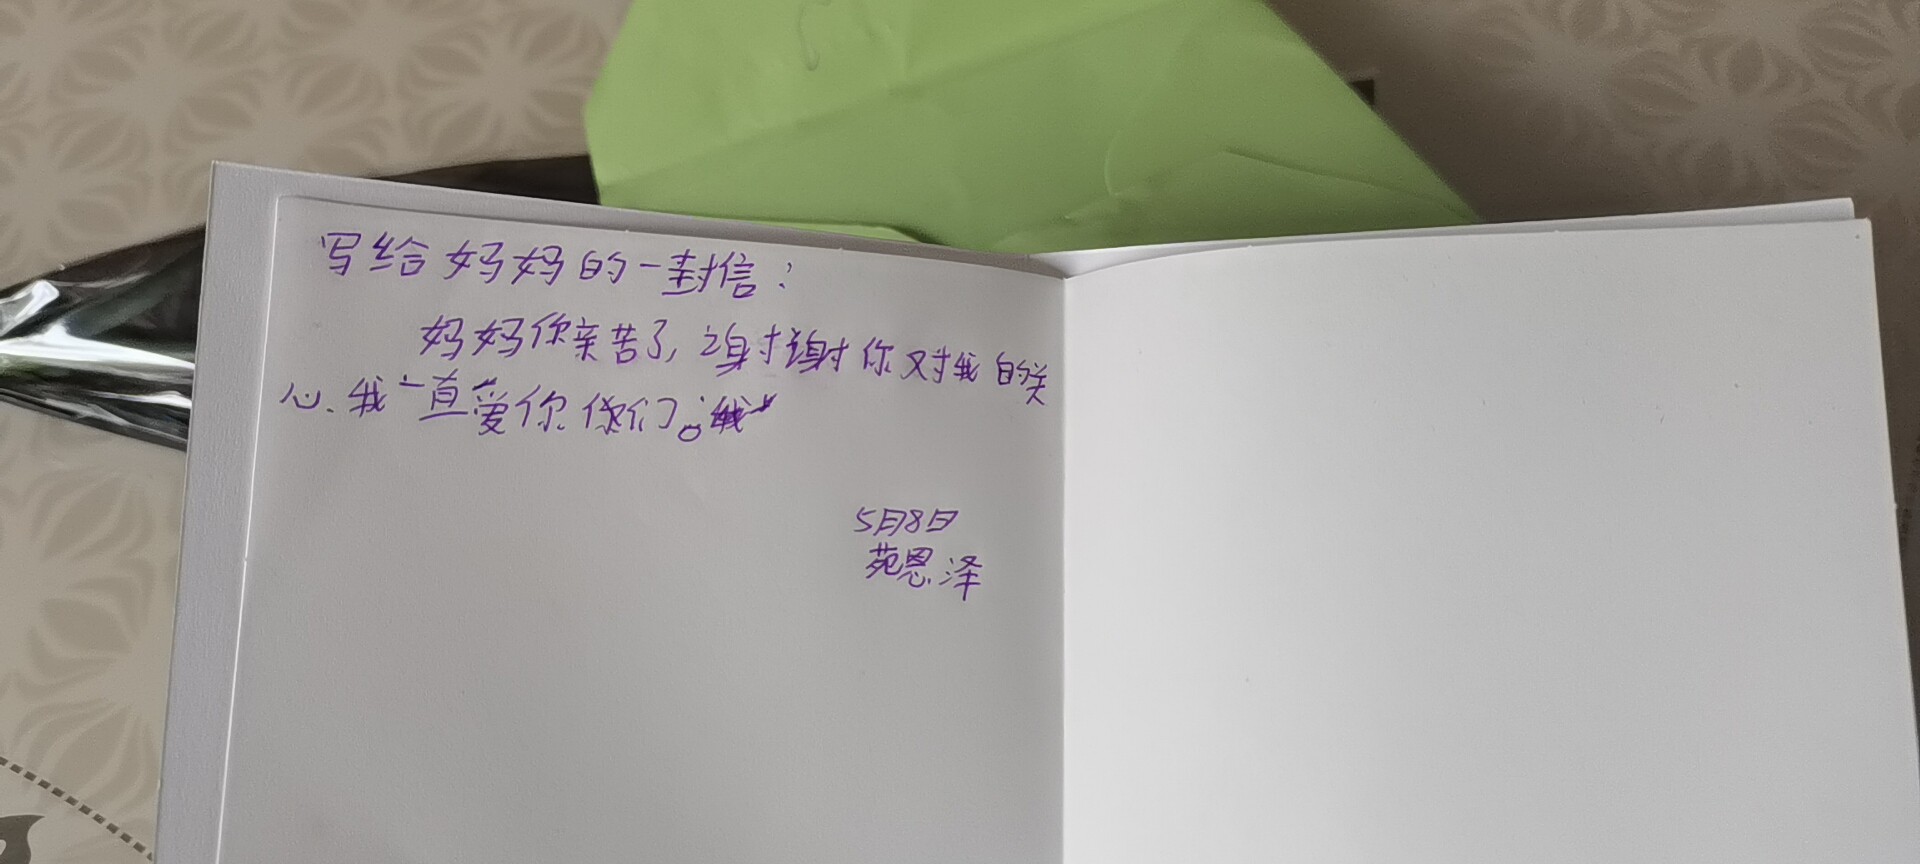 写给妈妈的一封信：
妈妈你亲苦了，谢谢你对我的关
心、我一直爱你你们。
5月8日
苑恩泽